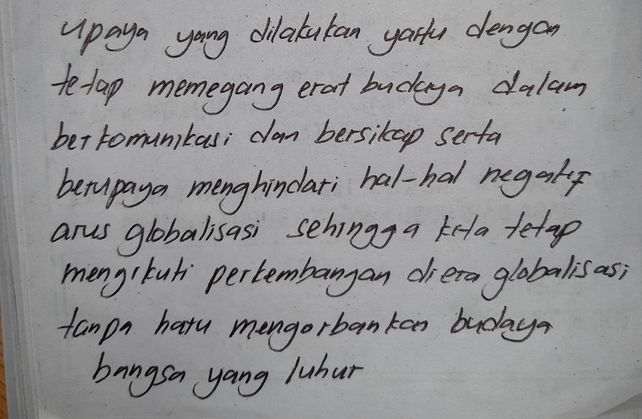 upaya yang dilakukan yaitu dengan
tetap memegang erat budaya dalam
berkomunikasi dan bersikap serta
berupaya menghindari hal-hal negatif
arus globalisasi sehingga kita tetap
mengikuti perkembangan di era globalisasi
tanpa haru mengorbankan budaya
bangsa yang luhur